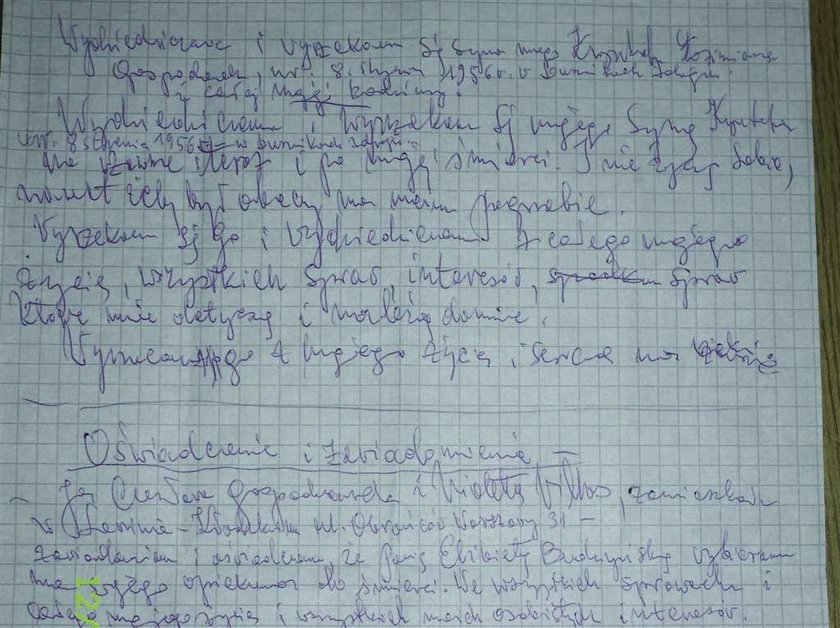 Wydziedziczam i wyrzekam się syna mego Krzysztofa
Gospodarek, ur. 8. stycznia 1956 r. w
z całej mojej rodziny!
Wydziedziczam i wyrzekam się mojego syna Krzysztofa
ur. 8 stycznia 1956 w
na zawsze i teraz i po mojej śmierci. I nie życzę sobie,
był obecny na moim pogrzebie.
Wyrzekam się go i wydziedziczam z całego mojego
życia, wszystkich spraw, interesów, spraw
które mnie dotyczą i należą do mnie.
go z mojego życia i serca na
Oświadczenie i zawiadomienie
Ja Czesława Gospodarek i Violetta Villas, zamieszkała
w ul. Obrońców Warszawy 31 –
zawiadamiam i oświadczam, że Panią Elżbietę Budzyńską wybieram
na mojego opiekuna do śmierci. We wszystkich sprawach i
całego mojego życia i wszystkich moich osobistych interesów.